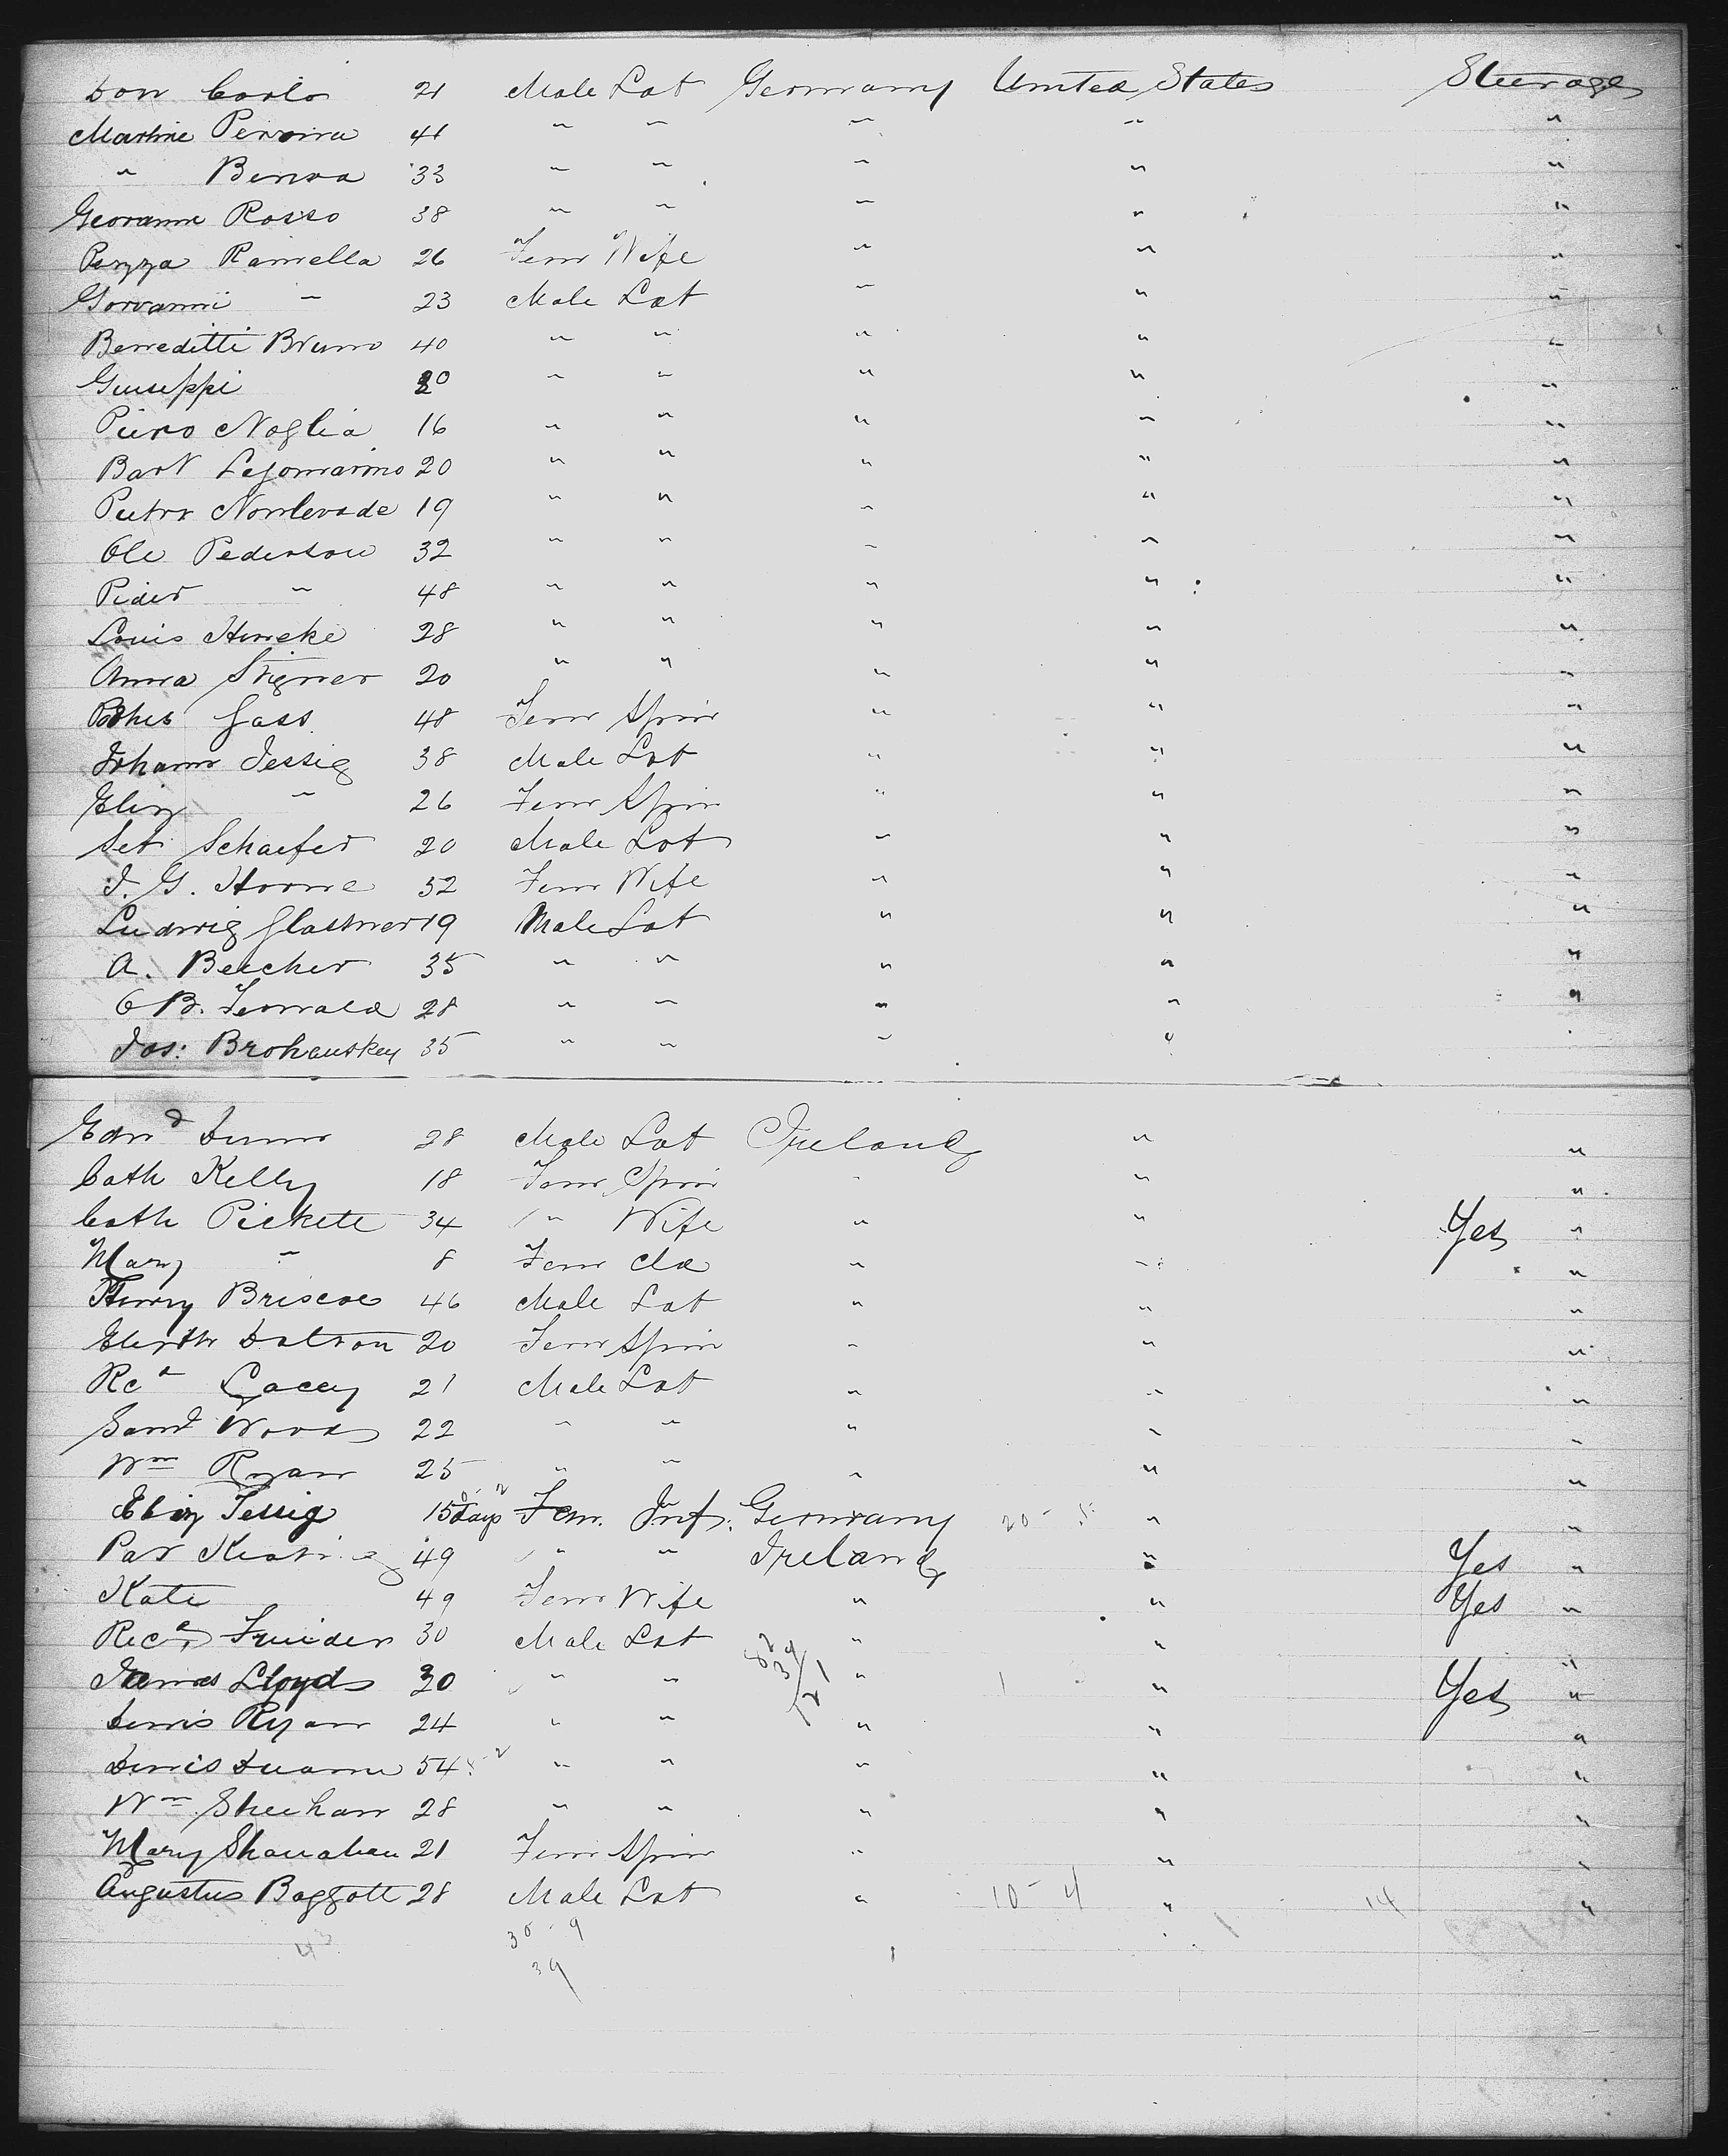 Don Carlo 21 Male Lab Germany United States Steerage
Martine Perrona 41 " " " " "
" Benva 33 " " " " "
Geovanne Rosso 38 " " " " "
Pezza Ramella 26 Fem Wife " " "
Giovanni " 23 Male Lab " " "
Beneditti Bruno 40 " " " " "
Guiseppi 20 " " " " "
Piero Noglia 16 " " " " "
Bart 20 " " " " "
Pietro 19 " " " " "
Ole Pederson 32 " " " " "
Peder " 48 " " " " "
Louis Hineke 28 " " " " "
Anna Stigner 20 " " " " "
Gass 48 Fem Spin " " "
Johann Jessig 38 Male Lab " " "
Eliz " 26 Fem Spin " " "
Seb Schaefer 20 Male Lab " " "
J. G. Horne 32 Fem Wife " " "
Ludwig Glastner 19 Male Lab " " "
A. Beecher 35 " " " " "
O B. 28 " " " " "
Jos: Brohauskey 35 " " " "
Edwd Dunn 28 Male Lab Ireland " "
Cath Kelly 18 Fem Spin " " "
Cath Pickett 34 " Wife " " Yes "
Mary " 8 Fem Cld " " "
Henry Briscoe 46 Male Lab " " "
Elizth Dalton 20 Fem Spin " " "
Rcd Lacey 21 Male Lab " " "
Saml Woods 22 " " " " "
Wm Ryan 25 " " " " "
Eliz Jessig 15 days Fem. Inf. Germany 20 - " "
Pat Keating 49 " " Ireland " Yes "
Kate 49 Fem Wife " " Yes "
Recd 30 Male Lab " " "
James Lloyds 30 " " " " Yes "
Denis Ryan 24 " " " " "
Denis Duanne 54 " " " " "
Wm Sheehan 28 " " " " "
Mary Shanahan 21 Fem Spin " " "
Augustus Baggott 28 Male Lab " 10 - 4 " 14 "
43 30 - 9
39